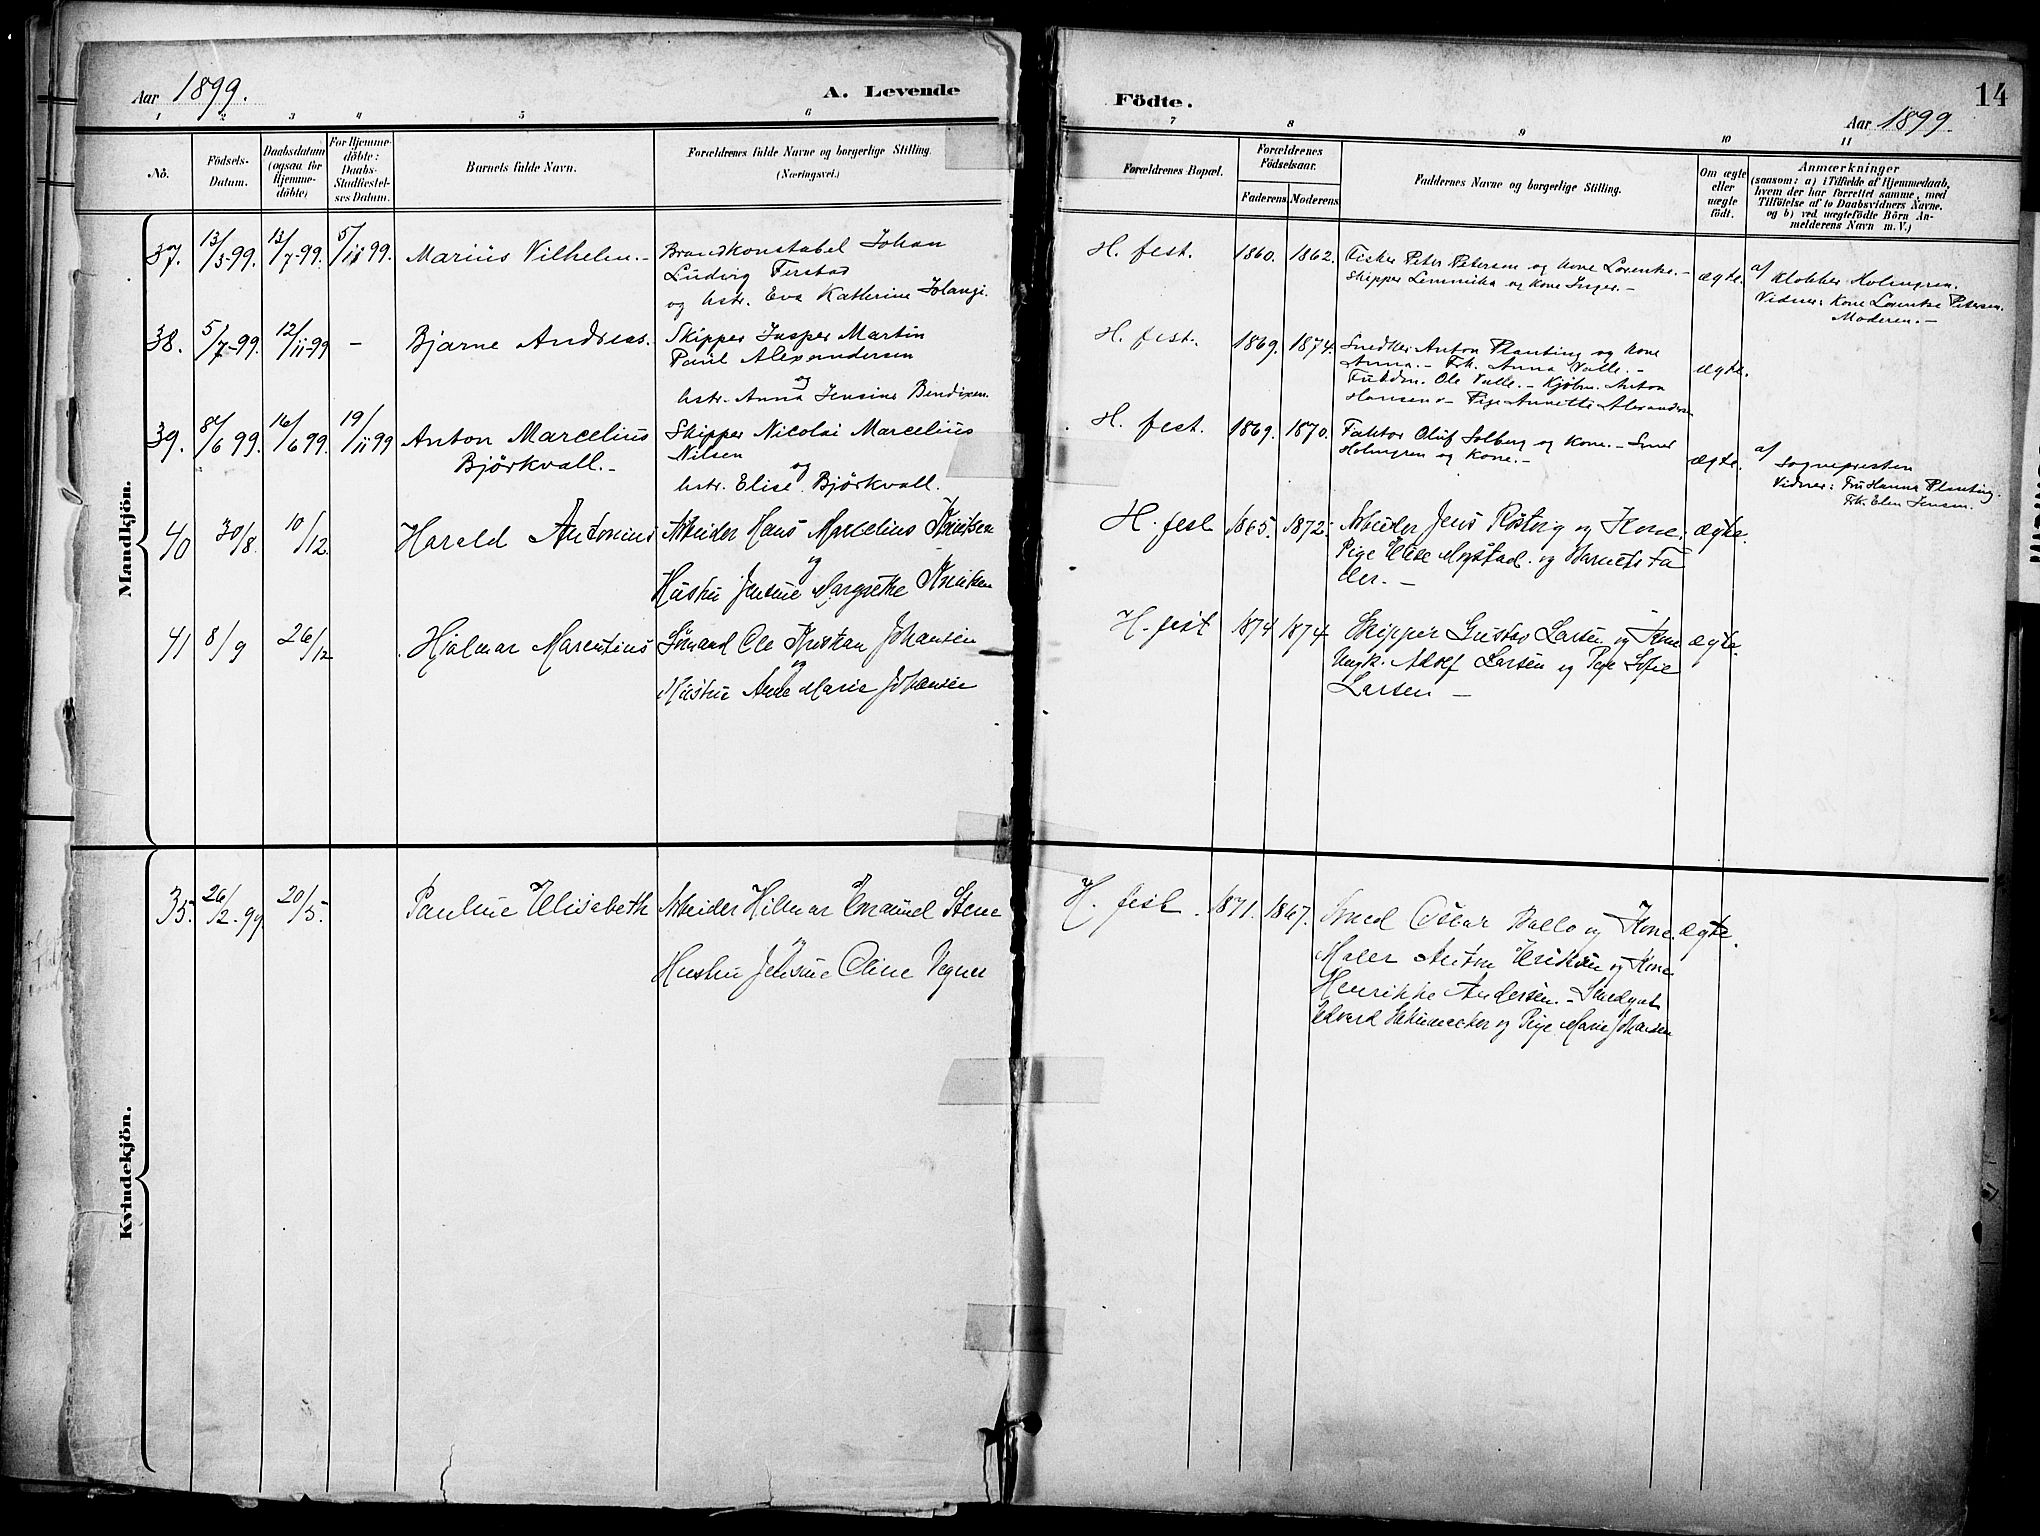 Aar 1899.
A. Levende
1 2 3 4 5 6
Nô.
Födsels-Datum.
Daabsdatum (ogsaa for Hjemme-döbte)
For Hjemme-döbte: Daabs-Stadfæstel-ses Datum.
Barnets fulde Navn.
Forældrenes fulde Navne og borgerlige Stilling. (Næringsvei.)
Födte.
14
Aar 1899.
7 8 9 10 11
Forældrenes Bopæl.
Forældrenes Födselsaar.
Faderens Moderens
Faddernes Navne og borgerlige Stilling.
Om ægte eller uægte födt.
Anmærkninger
(saasom: a) i Tilfælde af Hjemmedaab,
hvem der har forrettet samme, med
Tilföielse af to Daabsvidners Navne.
og b) ved uægtefödte Börn An-
melderens Navn m. V.)
Mandkjön.
37. 13/3-99. 13/7-99. 5/11 99. Marius Vilhelm.- Brandkonstabel Johan
Ludvig Ferstad
og hstr. Eva Kathrine
H. fest. 1860. 1862. Fisker Peter Petersen og kone Lorentze.-
Skipper og Kone Inger.-
ægte.
af Klokker Holmgren.
Vidner: Kone Lorentze Petersen.
Moderen.-
38. 5/7-99. 12/11-99 - Bjarne Andreas. Skipper Jasper Martin
Paul Alexandersen
og
hstr. Anna Jensine Bendixen.
H. fest. 1869. 1874. Snedker Anton Planting og kone
Anna.- Frk. Anna Valle.-
Ole Valle.- Kjöbm. Anton
Hansen.- Pige Annette Alexandersen
ægte.
39. 8/6 99. 16/6 99. 19/11 99 Anton Marcelius
Björkvall.-
Skipper Nicolai Marcelius
Nilsen
og
hstr. Elise Björkvall.
H. fest. 1869. 1870. Faktor Oluf Solberg og Kone.- Smed
Holmgren og Kone.-
ægte.
af Sognepresten
Vidner: Fru Hanna Planting.
Frk. Elen Jensen.
40 30/8. 10/12. Harald Antonius Arbeider Hans Marcelius Knutsen
og
Hustru Jensine Margrethe Knutsen
H. fest 1865. 1872. Arbeider Jens og Kone.
Pige Elise og Barnets Fa
der.-
ægte.
41 8/9 26/12 Hjalmar Marentius Sömand Ole Kristian Johansen
og
Hustru Ane Marie Johansen
H. fest 1874 1874 Skipper Gustav Larsen og Kone
Ungk. Adolf Larsen og Pige Sofie
Larsen -
ægte.
Kvindekjön.
35. 26/2-99. 20/5. Pauline Elisabeth Arbeider Hilmar Emanuel Stene
og
Hustru Jensine Oline Vegner
H. fest. 1871. 1867. Smed Oscar Ballo og Kone.
Maler Anton Eriksen og Kone
Henrikke Andersen.-
Edvard og Pige Marie Johansen
ægte.